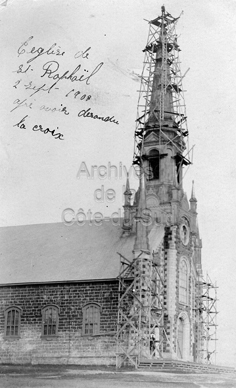 L'église de
St-Raphaël
2 Sept- 1908
après avoir descendu
la croix
Archives
de
Côte-du-Sud